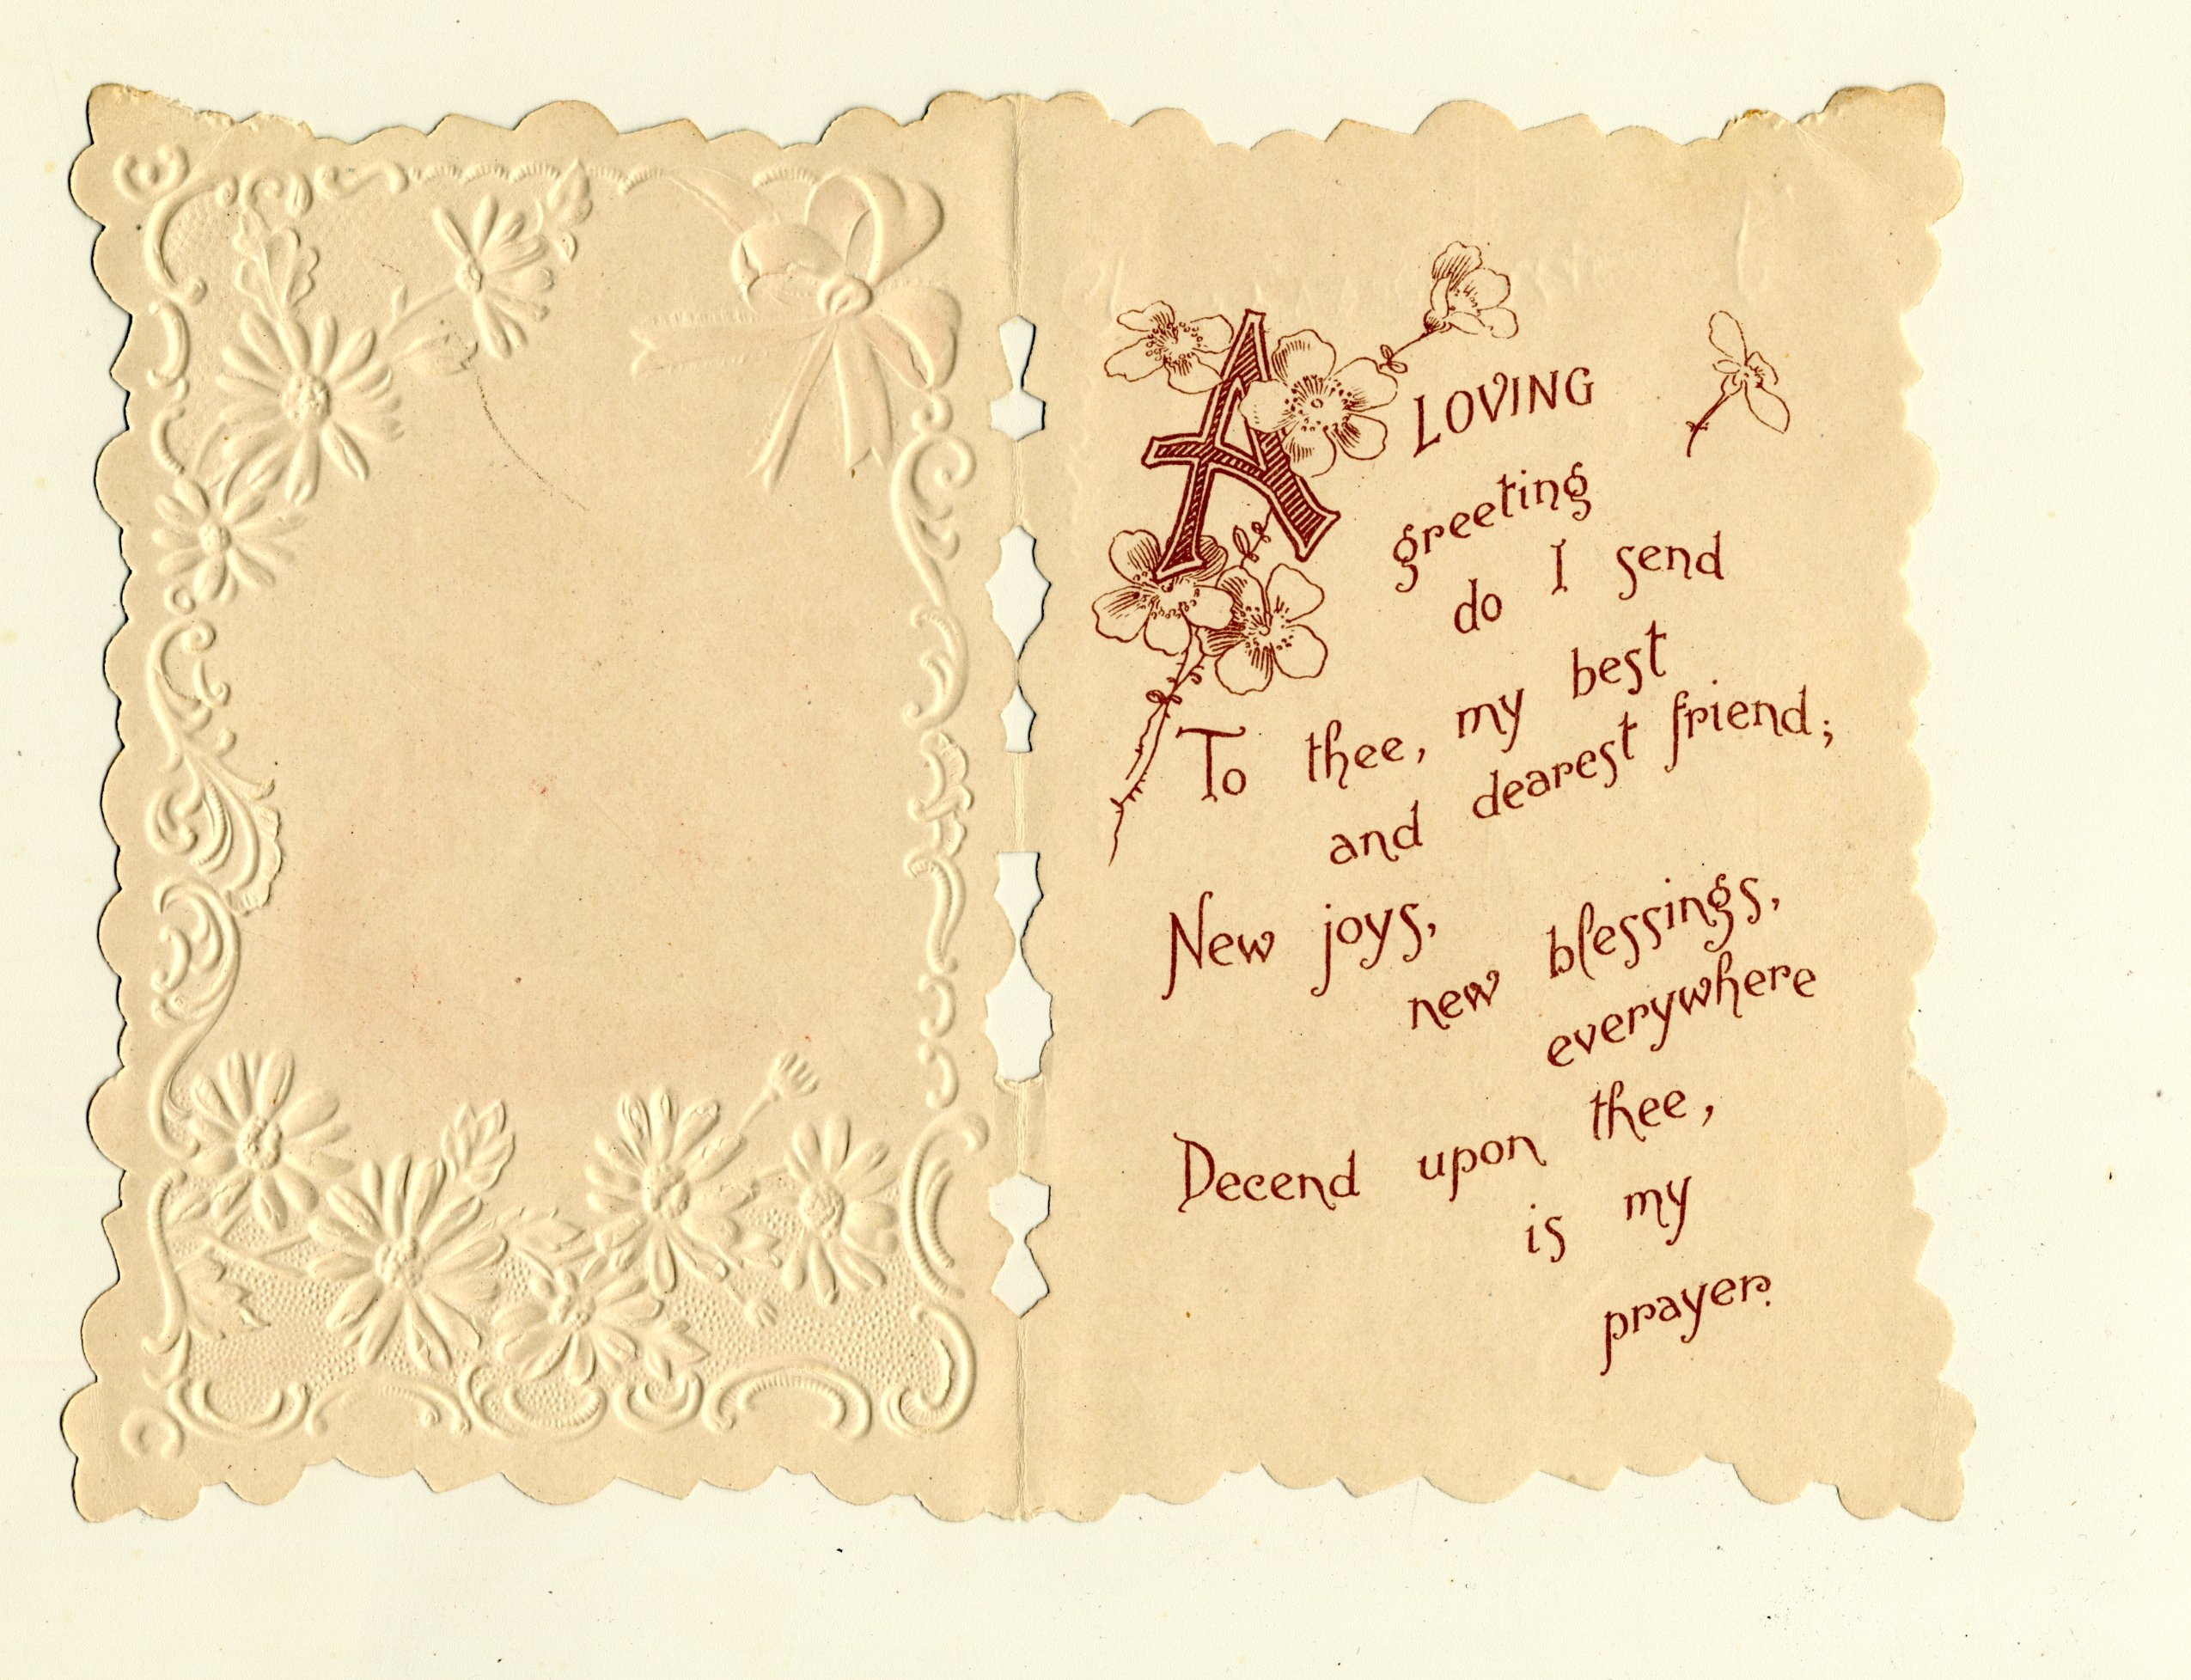 A LOVING
greeting
do I send
To thee, my best
and dearest friend;
New joys,
new blessings,
everywhere
Decend upon thee,
is my
prayer.